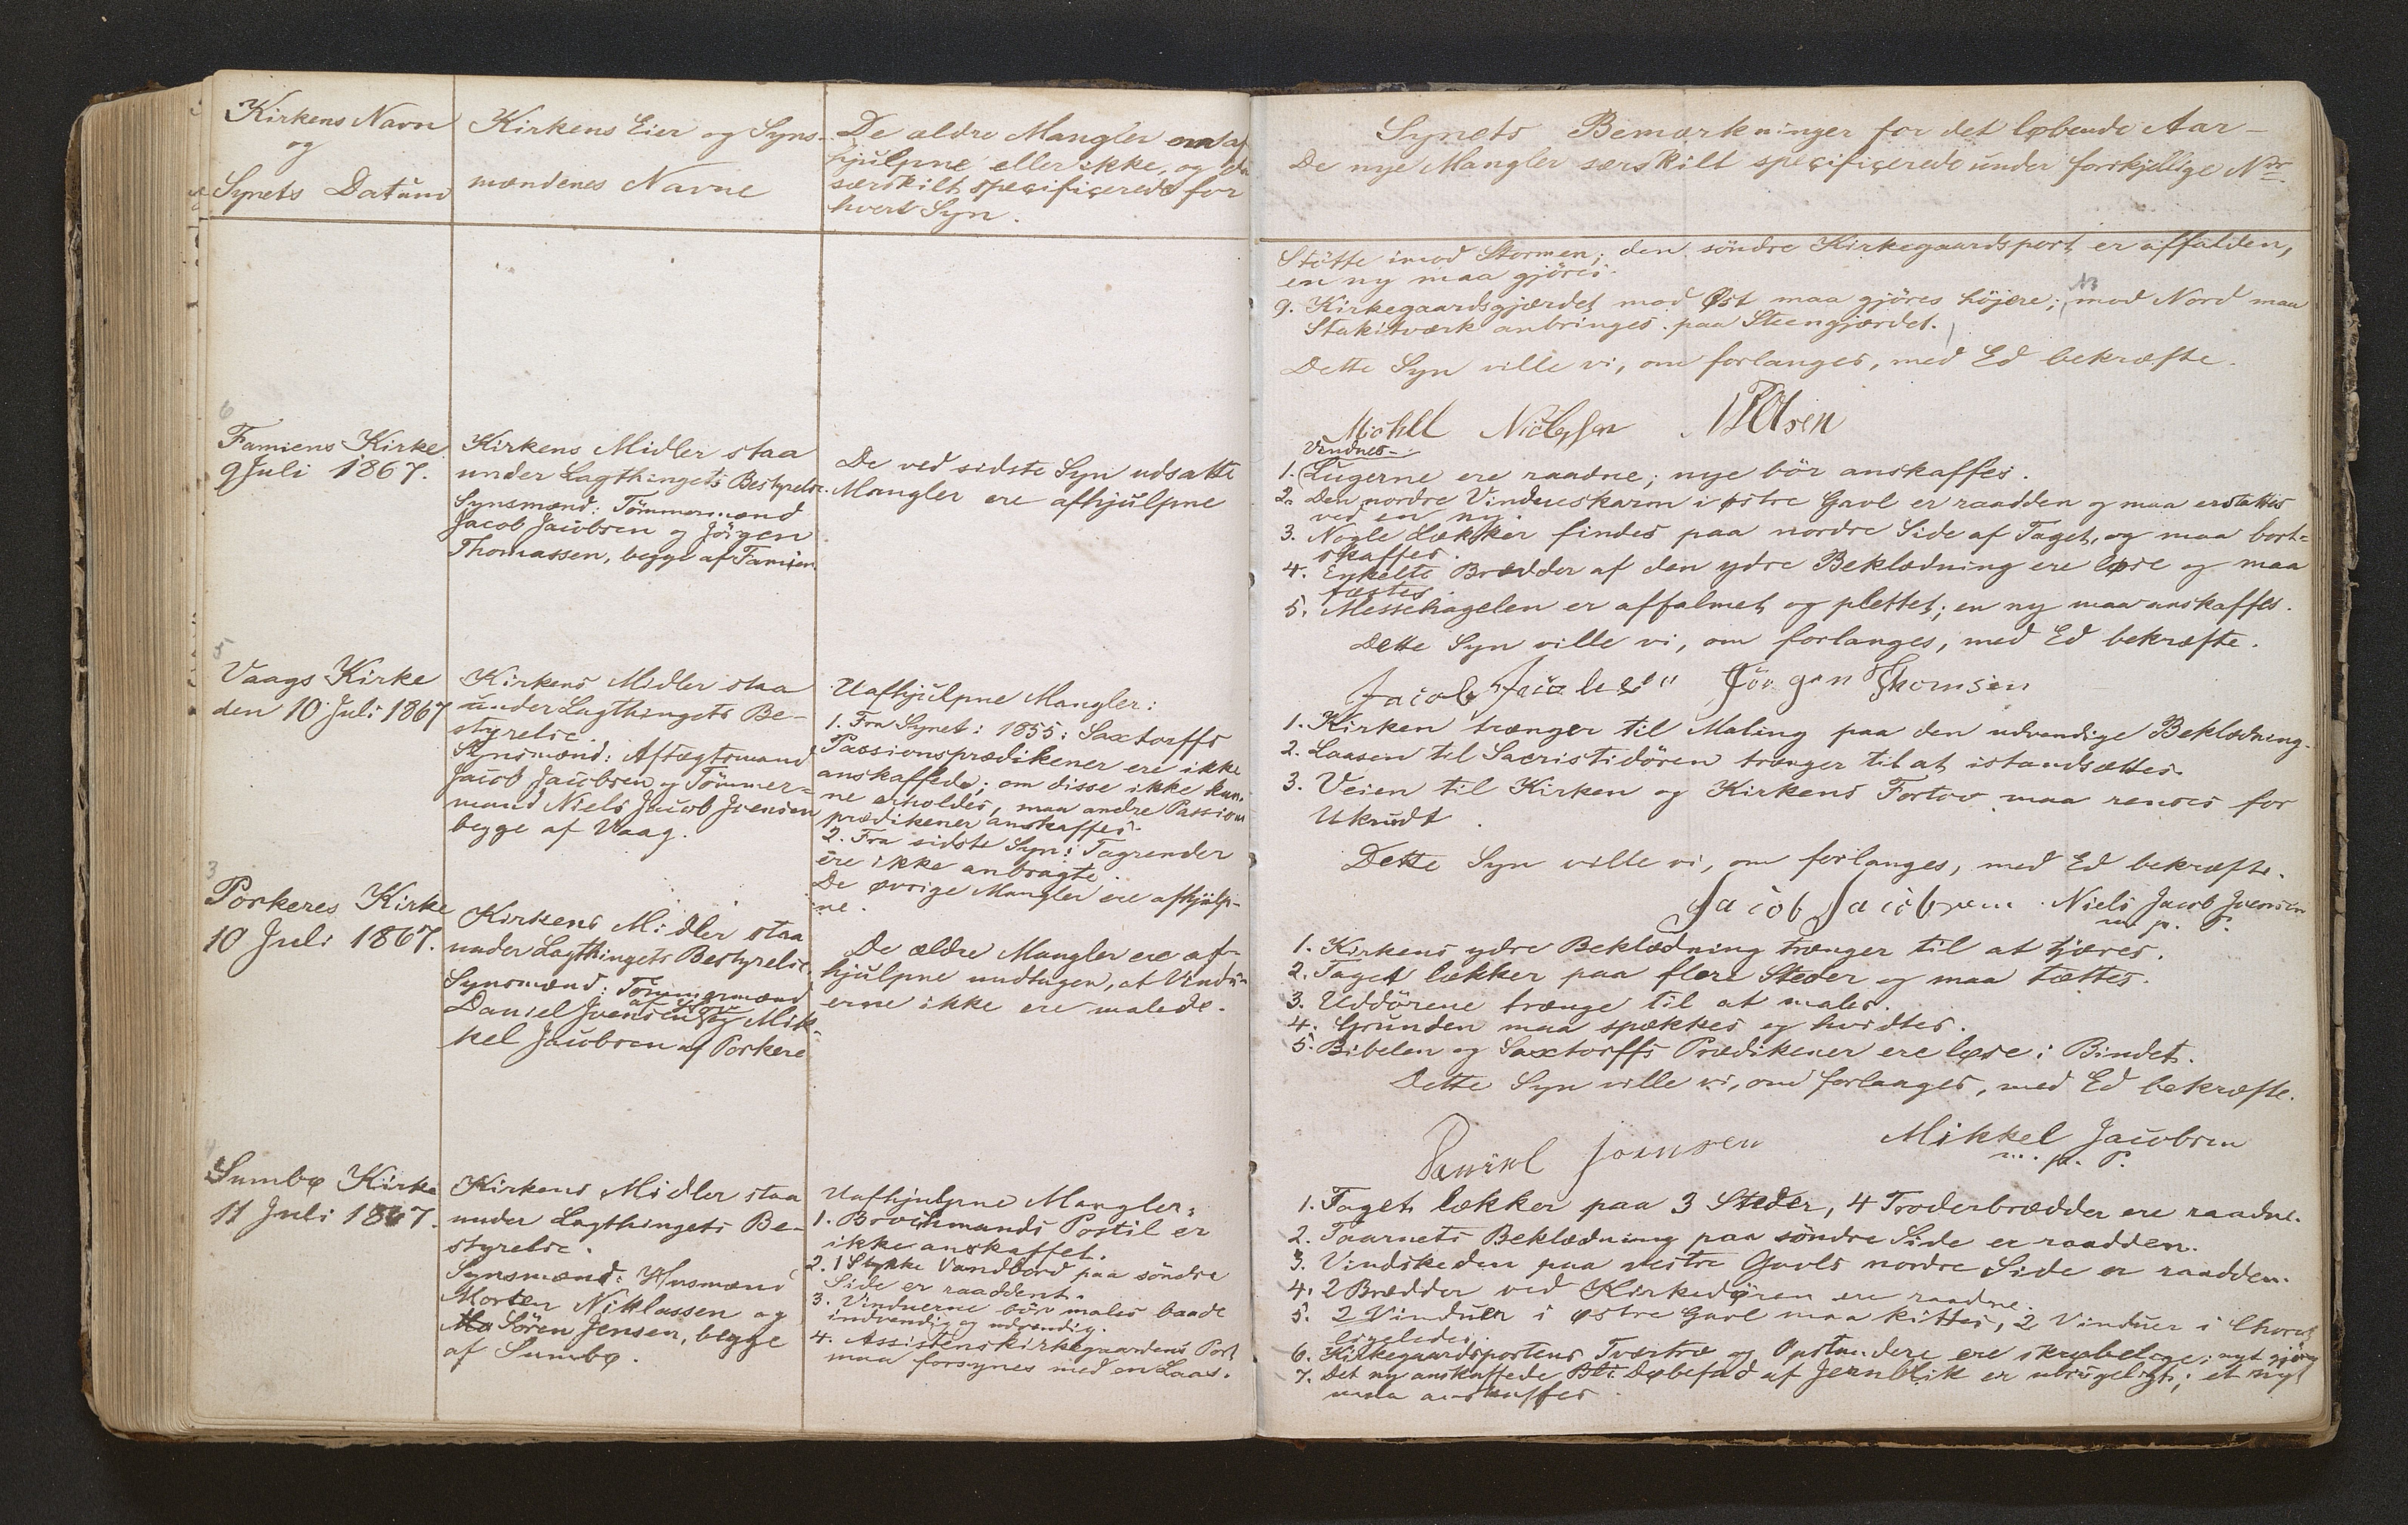 Kirkens Navn
og
Synets Datum
Kirkens Eier og Syns-
mændenes Navne
De ældre Mangler om af
hjulpne eller ikke, og da
særskilt specificerede for
hvert Syn.
6
Famiens Kirke
9 Juli 1867.
Kirkens Midler staa
under Lagthingets Bestyrelse.
Synsmænd: Tömmermænd
Jacob Jacobsen og Jörgen
Thomassen, begge af Famien
De ved sidste Syn udsatte
Mangler ere afhjulpne
5
Vaags Kirke
den 10 Juli 1867
Kirkens Midler staa
under Lagthingets Be-
styrelse.
Synsmænd: Aftægtsmand
Jacob Jacobsen og Tömmer-
mand Niels Jacob Joensen
begge af Vaag.
Uafhjulpne Mangler:
1. Fra Synet: 1855: Saxtorffs
Passionsprædikener ere ikke
anskaffede; om disse ikke kun-
ne erholdes, maa andre Passions
prædikener anskaffes.
2. Fra sidste Syn: Tagrender
ere ikke anbragte.
De øvrige Mangler ere afhjulp-
ne.
3
Porkeres Kirke
10 Juli 1867.
Kirkens Midler staa
under Lagthingets Bestyrelse.
Synsmænd: Tömmermænd
Daniel Joensen og Mik-
kel Jacobsen af Porkere
De ældre Mangler ere af-
hjulpne undtagen, at Vindu-
erne ikke ere malede.
4
Sumbø Kirke
11 Juli 1867.
Kirkens Midler staa
under Lagthingets Be-
styrelse.
Synsmænd: Husmænd
Morten Niklassen og
Sören Jensen, begge
af Sumbø.
Uafhjulpne Mangler:
1. Brochmands Postil er
ikke anskaffet.
2. 1 Stykke Vandbord paa söndre
Side er raaddent.
3. Vinduerne bör males baade
indvendig og udvendig.
4. Assistenskirkegaardens Port
maa forsynes med en Laas.
Synets Bemærkninger for det løbende Aar-
De nye Mangler særskilt specificerede under forskjellige Nr.
Stötte imod Stormen; den söndre Kirkegaardsport er affalden,
en ny maa gjöres.
9. Kirkegaardsgjærdet mod Øst maa gjöres höjere; mod Nord maa
Stakitværk anbringes paa Steengjærdet.
Dette Syn ville vi, om forlanges, med Ed bekræfte.
Olsen
Vindues-
1. Lugerne ere raadne; nye bör anskaffes.
2. Den nordre Vindueskarm i østre Gavl er raadden og maa erstattes
ved en ny.
3. Nogle Lækker findes paa nordre Side af Taget, og maa bort-
skaffes.
4. Enkelte Brædder af den ydre Beklædning ere løse og maa
fæstes.
5. Messehagelen er affalmet og plettet; en ny maa anskaffes.
Dette Syn ville vi, om forlanges, med Ed bekræfte.
Jacob Jacobsen Jörgen Thomsen
1. Kirken trænger til Maling paa den udvendige Beklædning.
2. Laasen til Sacristidören trænger til at istandsættes.
3. Veien til Kirken og Kirkens Fortov maa renses for
Ukrudt.
Dette Syn ville vi, om forlanges, med Ed bekræfte.
Jacob Jacobsen Niels Jacob Joensen
m. p. P.
1. Kirkens ydre Beklædning trænger til at tjæres.
2. Taget lækker paa flere Steder og maa tættes.
3. Uddörene trænge til at males.
4. Grunden maa spækkes og hvidtes.
5. Bibelen og Saxtorffs Prædikener ere løse i Bindet.
Dette Syn ville vi, om forlanges, med Ed bekræfte.
Daniel Joensen Mikkel Jacobsen
m. p. P.
1. Taget lækker paa 3 Steder, 4 Troderbrædder ere raadne.
2. Taarnets Beklædning paa söndre Side er raadden.
3. Vindskeden paa vestre Gavls nordre Side er raadden.
4. 2 Brædder ved Kirkedören ere raadne.
5. 2 Vinduer i østre Gavl maa kittes, 2 Vinduer i Choret
ligeledes.
6. Kirkegaardsportens Tværtræ og Opstandere ere skrøbelige; nyt gjöres
7. Det ny anskaffede Døbefad af Jernblik er ubrugeligt; et nyt
maa anskaffes.